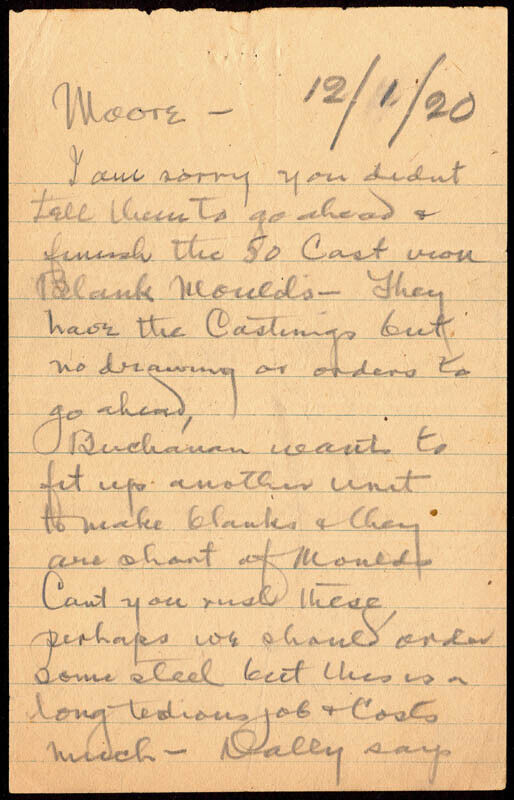 12/1/20
Moore -
I am sorry you didnt
tell them to go ahead &
finish the 50 Cast iron
Blank Moulds - They
have the Castings but
no drawing or orders to
go ahead,
Buchanan wants to
fit up another unit
to make blanks & they
are short of Moulds
Cant you rush these,
perhaps we should order
some steel but this is a
long tedious job & Costs
much - Dally says